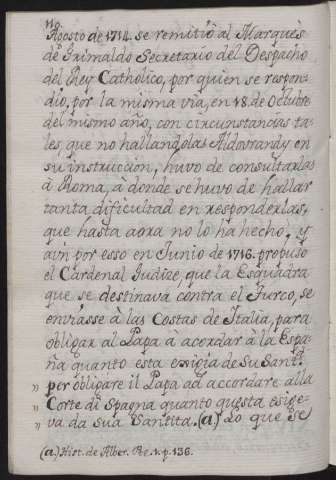 110.
Agosto de 1714. se remitió al Marquès
de Grimaldo Secretario del Despacho
del Rey Catholico, por quien se respon-
dió, por la misma via, en 18. de Octubre
del mismo año, con circunstancias ta-
les que no hallandolas Aldovrandy en
su instruccion, huvo de consultarlas
à Roma, à donde se huvo de hallar
tanta dificultad en responderlas,
que hasta aora no lo ha hecho. y
aùn por esso en Junio de 1716. propuso
el Cardenal Judice, que la Esquadra
que se destinava contra el Turco, se
enviàsse à las Costas de Italia, para
obligar al Papa à acordar à la Espa-
ña quanto esta exigia de Su Santd.
" per obligare il Papa ad accordare alla
" Corte di Spagna quanto questa esige-
" va da sua Santita. (a) Lo que se
(a) Hist. de Alber. Pe. 1. p. 136.